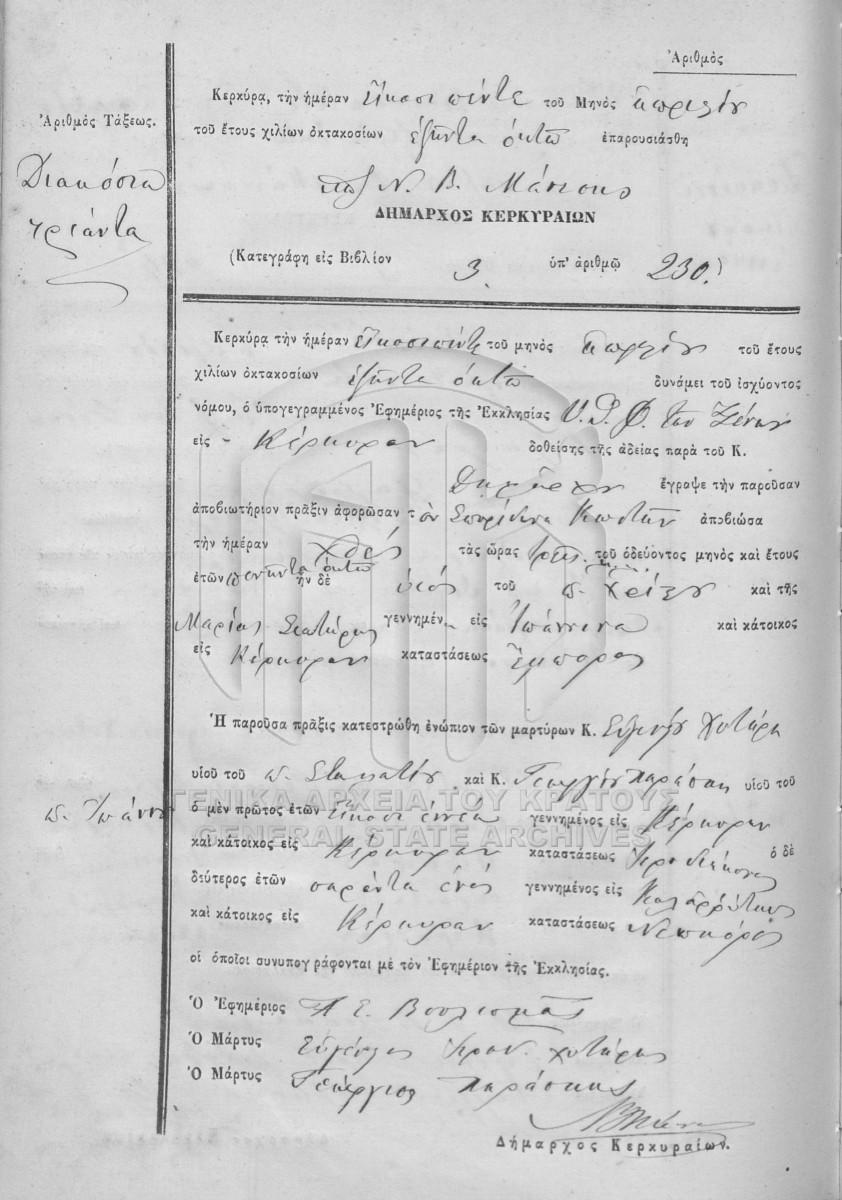 Ἀριθμὸς
Κερκύρα, τὴν ἡμέραν εἴκοσι πέντε τοῦ Μηνὸς Ἀπριλίου
Ἀριθμὸς Τάξεως.
τοῦ ἔτους χιλίων ὀκτακοσίων ἑξῆντα ὀκτὼ ἐπαρουσιάσθη
Διακόσια
τριάντα
Ν. Β. Μάνεσης
ΔΗΜΑΡΧΟΣ ΚΕΡΚΥΡΑΙΩΝ
(Κατεγράφη εἰς Βιβλίον 3. ὑπ' ἀριθμῷ 230.)
Κερκύρα τὴν ἡμέραν εἰκοσιπέντε τοῦ μηνὸς Ἀπριλίου τοῦ ἔτους
χιλίων ὀκτακοσίων ἑξῆντα ὀκτὼ δυνάμει τοῦ ἰσχύοντος
νόμου, ὁ ὑπογεγραμμένος Ἐφημέριος τῆς Ἐκκλησίας Υ. Θ. Φ. τῶν Ξένων
εἰς Κέρκυραν δοθείσης τῆς ἀδείας παρὰ τοῦ Κ.
Δημάρχου ἔγραψε τὴν παροῦσαν
ἀποβιωτήριον πρᾶξιν ἀφορῶσαν τὸν Σπυρίδωνα ἀποβιώσα
τὴν ἡμέραν χθὲς τὰς ὥρας τρεῖς τοῦ ὁδεύοντος μηνὸς καὶ ἔτους
ἐτῶν πενῆντα ὀκτὼ ἦν δὲ υἱὸς τοῦ π. καὶ τῆς
Μαρίας γεννημέν. εἰς Ἰωάννινα καὶ κάτοικος
εἰς Κέρκυραν καταστάσεως Ἔμπορος
Ἡ παροῦσα πρᾶξις κατεστρώθη ἐνώπιον τῶν μαρτύρων Κ. Εὐγενίου Χυτήρη
υἱοῦ τοῦ π. Σταματίου καὶ Κ. Γεωργίου Παράσχη υἱοῦ τοῦ
π. Ἰωάννου
ΓΕΝΙΚΑ ΑΡΧΕΙΑ ΤΟΥ ΚΡΑΤΟΥΣ
ὁ μὲν πρῶτος ἐτῶν εἴκοσι ἐννέα γεννημένος εἰς Κέρκυραν
GENERAL STATE ARCHIVES
καὶ κάτοικος εἰς Κέρκυραν καταστάσεως Ἱεροδιάκονος ὁ δὲ
δεύτερος ἐτῶν σαράντα ἑνὸς γεννημένος εἰς Καλαῤῥύταις
καὶ κάτοικος εἰς Κέρκυραν καταστάσεως Νεωκόρος
οἱ ὁποῖοι συνυπογράφονται μὲ τὸν Ἐφημέριον τῆς Ἐκκλησίας.
Ὁ Ἐφημέριος Α Ε. Βουλισμᾶς
Ὁ Μάρτυς Εὐγένιος Ἱεροδ. Χυτήρης
Ὁ Μάρτυς Γεώργιος Παράσχης
Δήμαρχος Κερκυραίων.